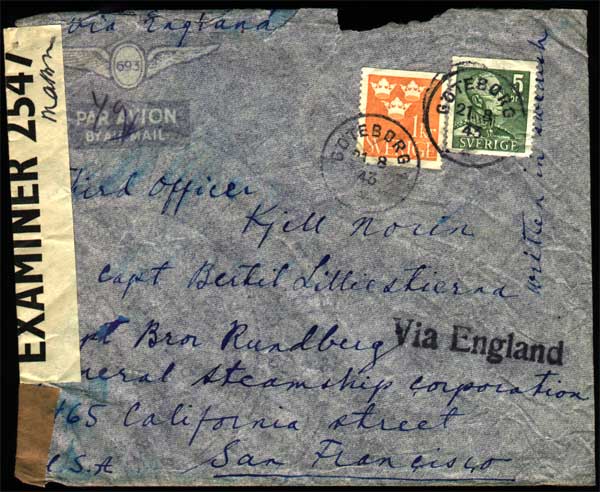 Via England
693
PAR AVION
BY AIR MAIL
EXAMINER 2547
1 KR
SVERIGE
GÖTEBORG
21 8
43
5
SVERIGE
GÖTEBORG
21 8
43
written in swedish
Third Officer
Kjell Norin
Capt Bertil Lilliestierna
pt Bror Rundberg
Via England
neral Steamship corporation
465 California street
U.S.A San Francisco